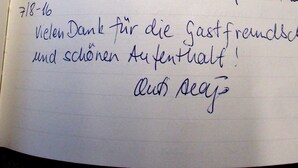 7/8-16
Vielen Dank für die Gastfreundsc
und schönen Aufenthalt!